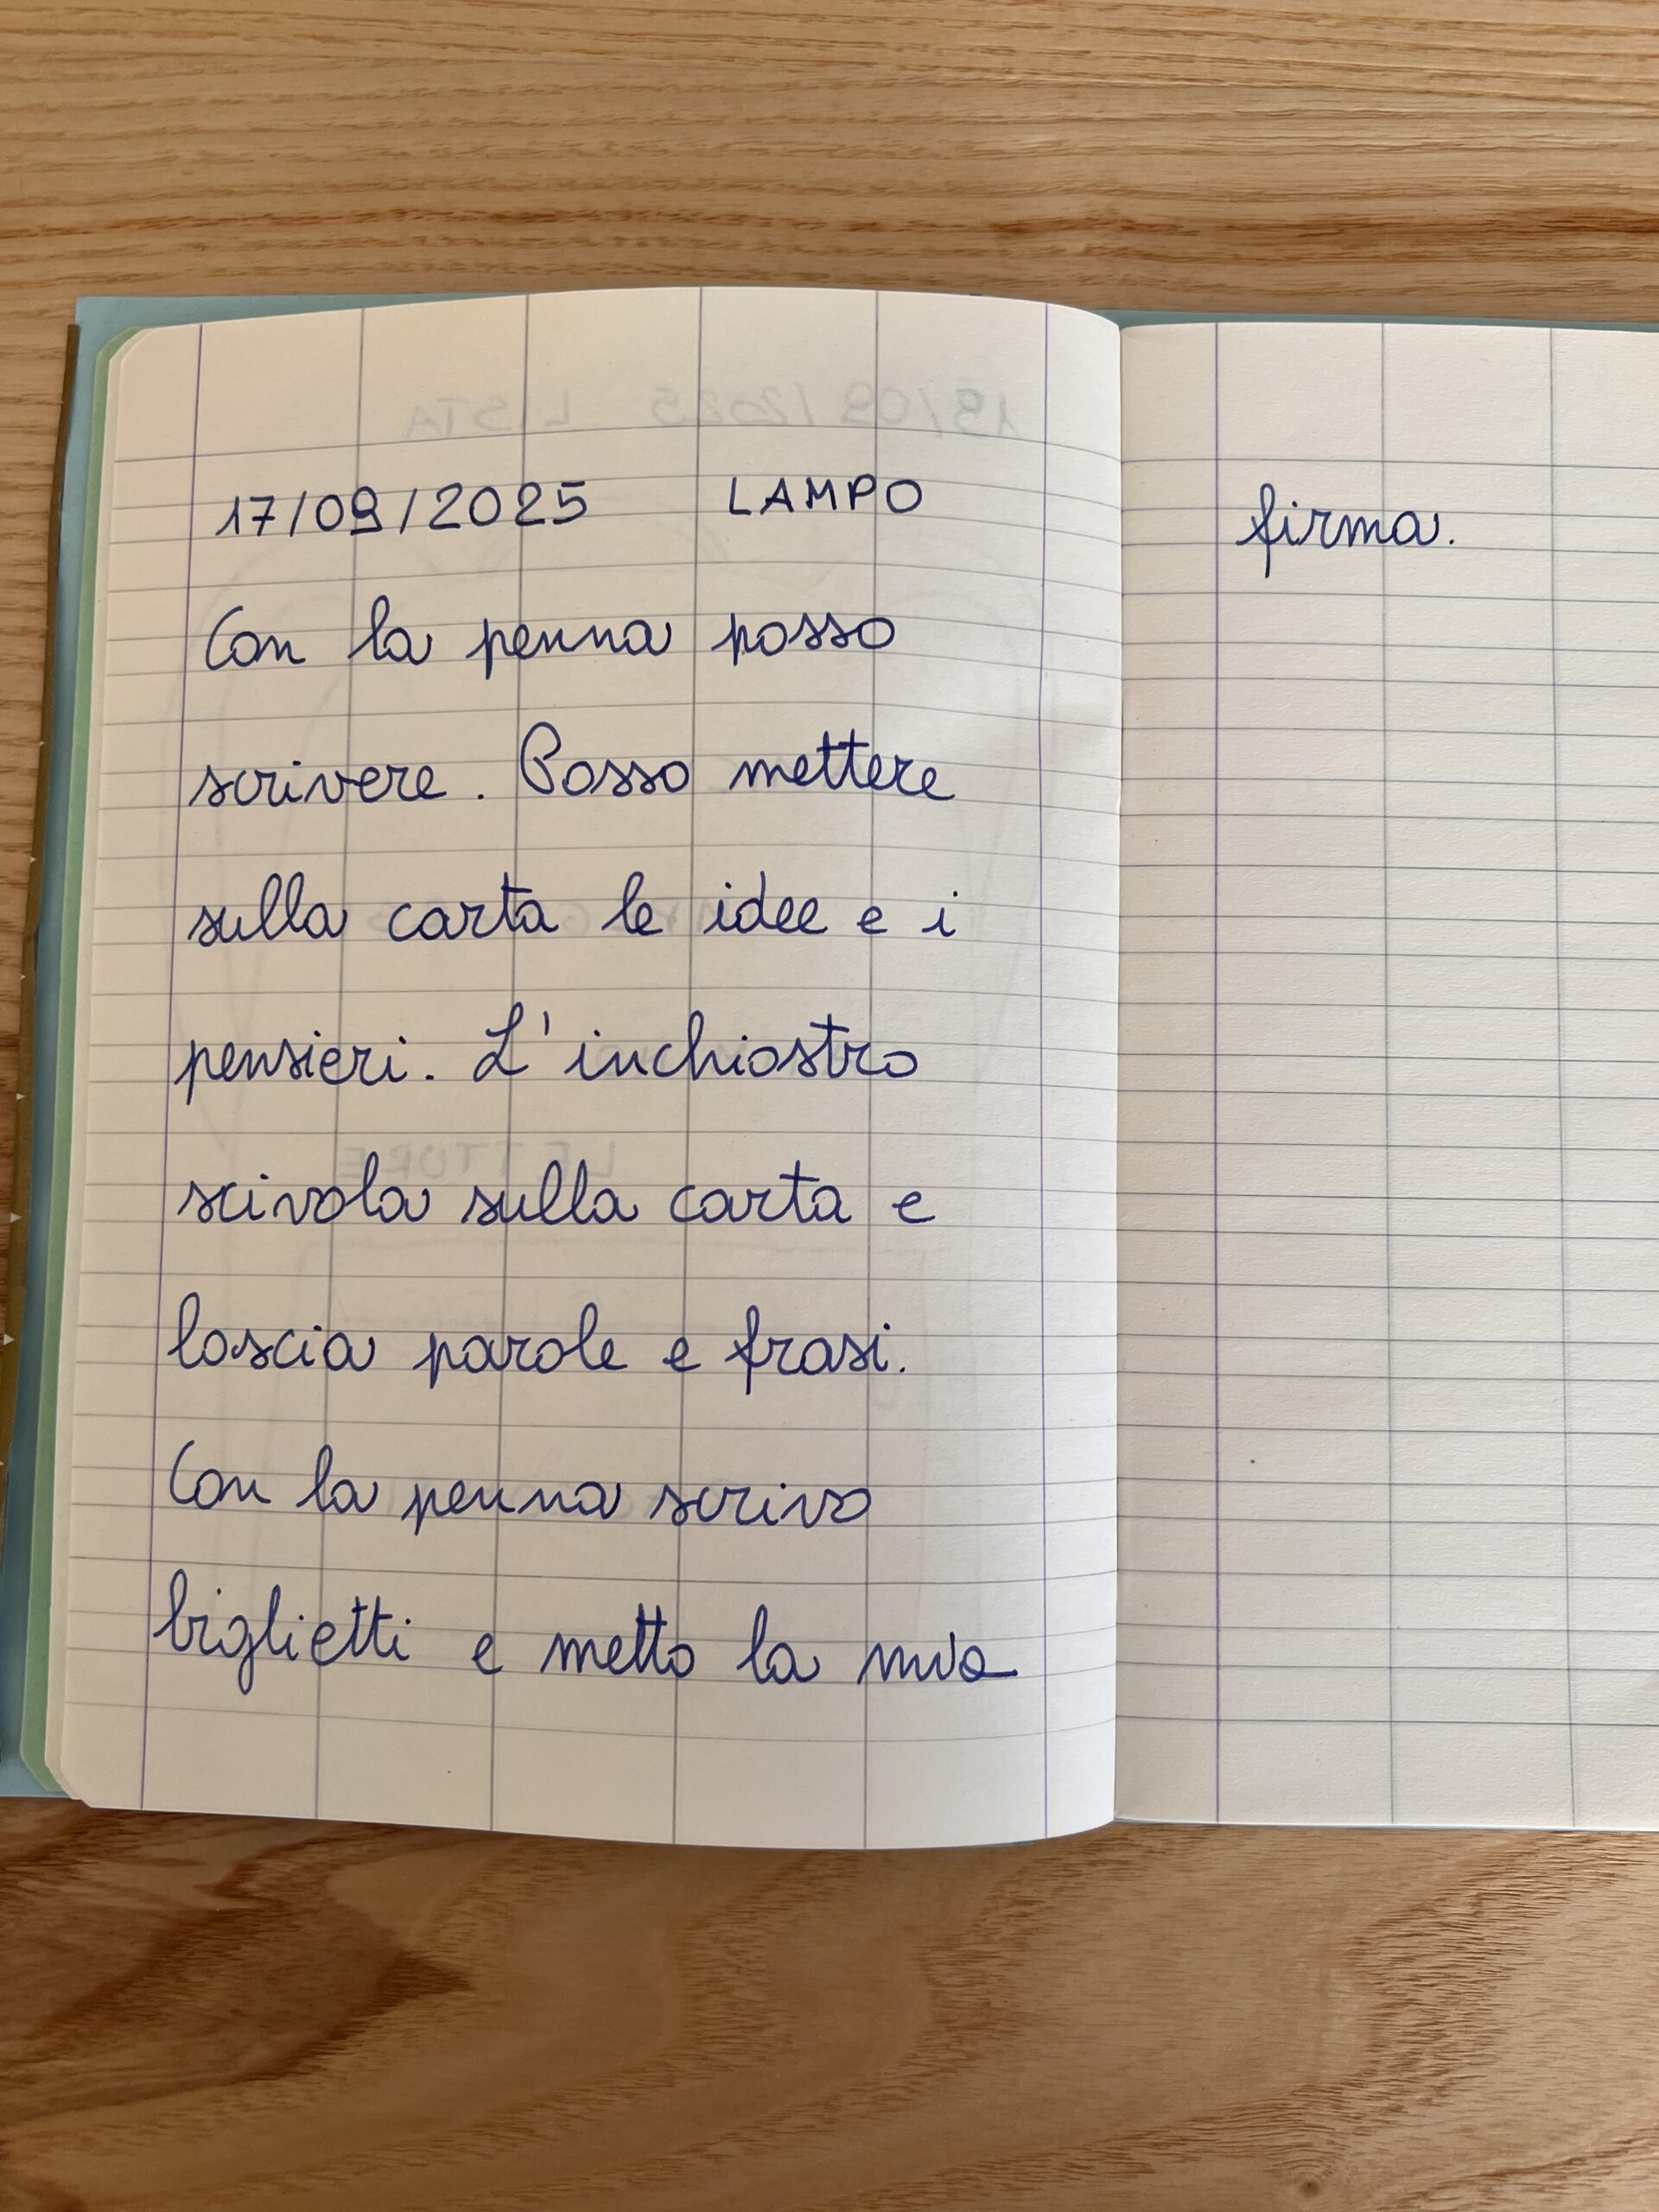 17/09/2025 LAMPO
Con la penna posso
scrivere. Posso mettere
sulla carta le idee e i
pensieri. L'inchiostro
scivola sulla carta e
lascia parole e frasi.
Con la penna scrivo
biglietti e metto la mia
firma.
19/09/2025 LISTA
LETTURE